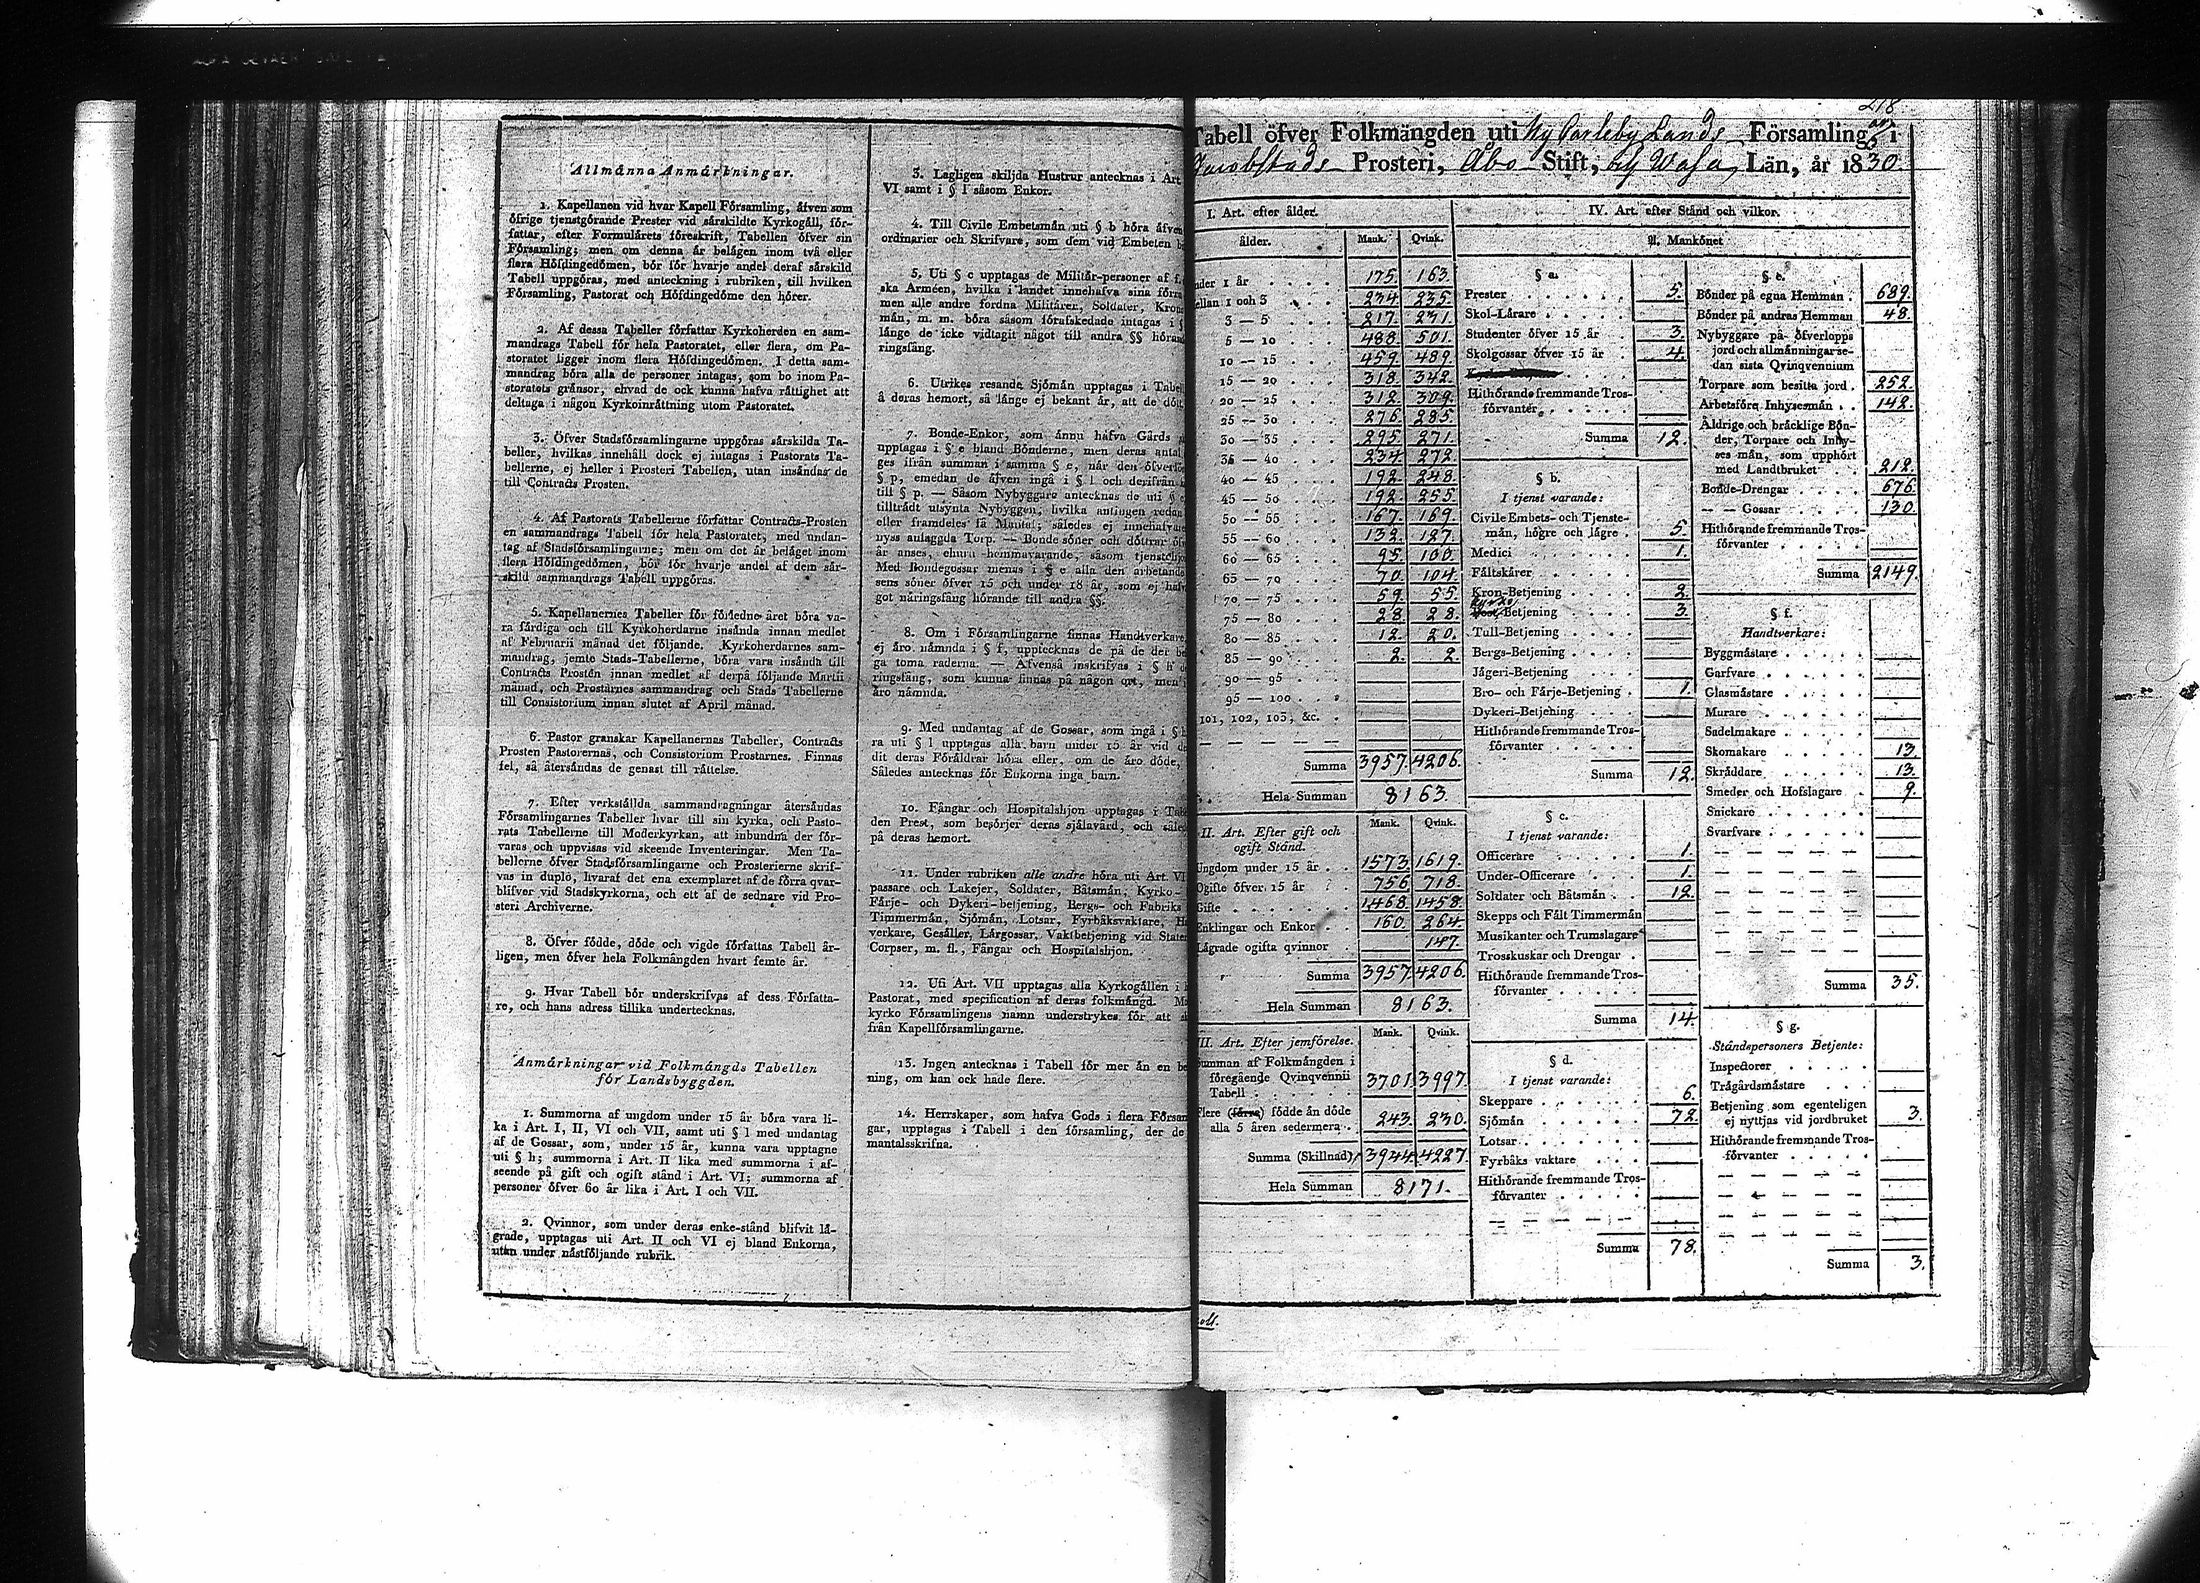 Allmänna Anmärkningar.
1. Kapellanen vid hvar Kapell Församling, äfven som
öfrige tjenstgörande Prester vid särskildte Kyrkogåll, för-
fattar, efter Formulärets föreskrift, Tabellen öfver sin
Församling; men om denna är belägen inom två eller
flera Höfdingedömen, bör för hvarje andel deraf särskild
Tabell uppgöras, med anteckning i rubriken, till hvilken
Församling, Pastorat och Höfdingedöme den hörer.
2. Af dessa Tabeller författar Kyrkoherden en sam-
mandrags Tabell för hela Pastoratet, eller flera, om Pa-
storatet ligger inom flera Höfdingedömen. I detta sam-
mandrag böra alla de personer intagas, som bo inom Pa-
storatets gränsor, ehvad de ock kunna hafva rättighet att
deltaga i någon Kyrkoinrättning utom Pastoratet.
3. Öfver Stadsförsamlingarne uppgöras särskilda Ta-
beller, hvilkas innehåll dock ej intagas i Pastorats Ta-
bellerne, ej heller i Prosteri Tabellen, utan insändas de
till Contracts Prosten.
4. Af Pastorats Tabellerne författar Contracts-Prosten
en sammandrags Tabell för hela Pastoratet, med undan-
tag af Stadsförsamlingarne; men om det är beläget inom
flera Höfdingedömen, bör för hvarje andel af dem sär-
skild sammandrags Tabell uppgöras.
5. Kapellanernes Tabeller för förledne året böra va-
ra färdiga och till Kyrkoherdarne insända innan medlet
af Februarii månad det följande. Kyrkoherdarnes sam-
mandrag, jemte Stads-Tabellerne, böra vara insända till
Contracts Prosten innan medlet af derpå följande Martii
månad, och Prostarnes sammandrag och Stads Tabellerne
till Consistorium innan slutet af April månad.
6. Pastor granskar Kapellanernas Tabeller, Contracts
Prosten Pastorernas, och Consistorium Prostarnes. Finnas
fel, så återsändas de genast till rättelse.
7. Efter verkställda sammandragningar återsändas
Församlingarnes Tabeller hvar till sin kyrka, och Pasto-
rats Tabellerne till Moderkyrkan, att inbundna der för-
varas och uppvisas vid skeende Inventeringar. Men Ta-
bellerne öfver Stadsförsamlingarne och Prosterierne skrif-
vas in duplo, hvaraf det ena exemplaret af de förra qvar-
blifver vid Stadskyrkorna, och ett af de sednare vid Pro-
steri Archiverne.
8. Öfver födde, döde och vigde författas Tabell år-
ligen, men öfver hela Folkmängden hvart femte år.
9. Hvar Tabell bör underskrifvas af dess Författa-
re, och hans adress tillika undertecknas.
Anmärkningar vid Folkmängds Tabellen
för Landsbyggden.
1. Summorna af ungdom under 15 år böra vara li-
ka i Art. I, II, VI och VII, samt uti § l med undantag
af de Gossar, som, under 15 år, kunna vara upptagne
uti § h; summorna i Art. II lika med summorna i af-
seende på gift och ogift stånd i Art. VI; summorna af
personer öfver 60 år lika i Art. I och VII.
2. Qvinnor, som under deras enke-stånd blifvit lä-
grade, upptagas uti Art. II och VI ej bland Enkorna,
utan under nästföljande rubrik.
3. Lagligen skiljda Hustrur antecknas i Art.
VI samt i § l såsom Enkor.
4. Till Civile Embetsmän uti § b höra äfven
ordinarier och Skrifvare, som dem vid Embeten
5. Uti § c upptagas de Militär-personer af f.
ska Arméen, hvilka i landet innehafva sina förra
men alle andre fordna Militärer, Soldater, Kron
män, m. m. böra såsom förafskedade intagas i §
länge de icke vidtagit något till andra §§ höran
ringsfång.
6. Utrikes resande Sjömän upptagas i Tabel
å deras hemort, så länge ej bekant är, att de dött
7. Bonde-Enkor, som ännu hafva Gårds
upptagas i § e bland Bönderne, men deras antal
ges ifrån summan i samma § e, når den öfverför
§ p, emedan de äfven ingå i § l och derifrån
till § p. — Såsom Nybyggare antecknas de uti §
tillträdt utsynta Nybyggen, hvilka antingen redan
eller framdeles få Mantal; således ej innehafvare
nyss anlaggda Torp. — Bonde söner och döttrar öf
år anses, ehuru hemmavarande, såsom tjenstehjo
Med Bondegossar menas i § e alla den arbetande
sens söner öfver 15 och under 18 år, som ej hafv
got näringsfång hörande till andra §§.
8. Om i Församlingarne finnas Handtverkare,
ej äro nämnda i § f, upptecknas de på de der be
ga toma raderna. — Äfvenså inskrifvas i § h
ringsfång, som kunna finnas på någon ort, men
äro nämnda.
9. Med undantag af de Gossar, som ingå i § h
ra uti § l upptagas alla barn under 15 år vid de
dit deras Föräldrar höra eller, om de äro döde,
Således antecknas för Enkorna inga barn.
10. Fångar och Hospitalshjon upptagas i Tab
den Prest, som besörjer deras själavård, och såle
på deras hemort.
11. Under rubriken alle andre höra uti Art. VI
passare och Lakejer, Soldater, Båtsmän, Kyrko-
Färje- och Dykeri-betjening, Bergs- och Fabriks
Timmermän, Sjömän, Lotsar, Fyrbåksvaktare, Ha
verkare, Gesäller, Lärgossar, Vaktbetjening vid Staten
Corpser, m. fl., Fångar och Hospitalshjon.
12. Uti Art. VII upptagas alla Kyrkogällen i
Pastorat, med specification af deras folkmängd. Mo
kyrko Församlingens namn understrykes för att
från Kapellförsamlingarne.
13. Ingen antecknas i Tabell för mer än en be
ning, om han ock hade flere.
14. Herrskaper, som hafva Gods i flera Försam
gar, upptagas i Tabell i den församling, der de
mantalsskrifna.
218
Tabell öfver Folkmängden uti Ny Carleby Lands Församling i
Jacobstads Prosteri, Åbo Stift, och Wasa Län, år 1830.
I. Art. efter ålder.
ålder. Mank. Qvink.
nder 1 år 175. 163
ellan 1 och 3 234 235.
3 — 5 217. 231.
5 — 10 488. 501.
10 — 15 459. 489.
15 — 20 318. 342.
20 — 25 312. 309.
25 — 30 276. 285.
30 — 35 295. 271.
35 — 40 234. 272.
40 — 45 192. 248.
45 — 50 192. 255.
50 — 55 167. 169.
55 — 60 132. 127.
60 — 65 95. 100.
65 — 70 70. 104.
70 — 75 59. 55.
75 — 80 28. 28.
80 — 85 12. 20.
85 — 90 2. 2.
90 — 95
95 — 100
101, 102, 103, &c.
Summa 3957. 4206.
Hela Summan 8163.
II. Art. Efter gift och ogift Stånd. Mank. Qvink.
Ungdom under 15 år 1573. 1619.
Ogifte öfver 15 år 756. 718.
Gifte 1468. 1458.
Enklingar och Enkor 160. 264.
Lägrade ogifta qvinnor 147.
Summa 3957. 4206.
Hela Summan 8163.
III. Art. Efter jemförelse. Mank. Qvink.
Summan af Folkmängden i
föregående Qvinqvennii
Tabell 3701. 3997.
Flere (färre) födde än döde
alla 5 åren sedermera 243. 230.
Summa (Skillnad) 3944. 4227.
Hela Summan 8171.
IV. Art. efter Stånd och vilkor.
A. Mankönet
§ a.
Prester 5.
Skol-Lärare
Studenter öfver 15 år 3.
Skolgossar öfver 15 år 4.
Hithörande fremmande Tros-
förvanter
Summa 12.
§ b.
I tjenst varande:
Civile Embets- och Tjenste-
män, högre och lägre 5.
Medici 1.
Fältskärer
Kron-Betjening 2.
Post-Betjening 3.
Tull-Betjening
Bergs-Betjening
Jägeri-Betjening
Bro- och Färje-Betjening 1.
Dykeri-Betjening
Hithörande fremmande Tros-
förvanter
Summa 12.
§ c.
I tjenst varande:
Officerare 1.
Under-Officerare 1.
Soldater och Båtsmän 12.
Skepps och Fält Timmermän
Musikanter och Trumslagare
Trosskuskar och Drengar
Hithörande fremmande Tros-
förvanter
Summa 14.
§ d.
I tjenst varande:
Skeppare 6.
Sjömän 72.
Lotsar
Fyrbåks vaktare
Hithörande fremmande Tros-
förvanter
Summa 78.
§ e.
Bönder på egna Hemman 689.
Bönder på andras Hemman 48.
Nybyggare på öfverlopps
jord och allmänningar se-
dan sista Qvinqvennium
Torpare som besitta jord 252.
Arbetsföra Inhysesmän 142.
Åldrige och bräcklige Bön-
der, Torpare och Inhy-
ses män, som upphört
med Landtbruket 212.
Bonde-Drengar 676.
— — Gossar 130.
Hithörande fremmande Tros-
förvanter
Summa 2149.
§ f.
Handtverkare:
Byggmästare
Garfvare
Glasmästare
Murare
Sadelmakare
Skomakare 13.
Skräddare 13.
Smeder och Hofslagare 9.
Snickare
Svarfvare
Summa 35.
§ g.
Ståndspersoners Betjente:
Inspector
Trägårdsmästare
Betjening som egenteligen
ej nyttjas vid jordbruket 3.
Hithörande fremmande Tros-
förvanter
Summa 3.